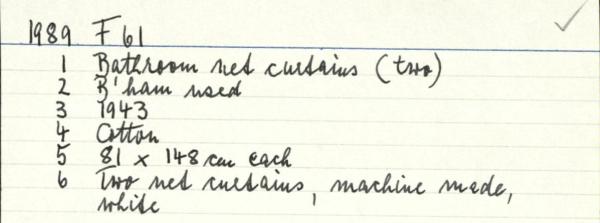 1989 F 61
1 Bathroom net curtains (two)
2 B'ham used
3 1943
4 Cotton
5 81 x 148 cm each
6 Two net curtains, machine made,
white